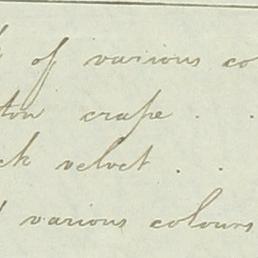 of various co
ton crape . .
ck velvet . .
various colours